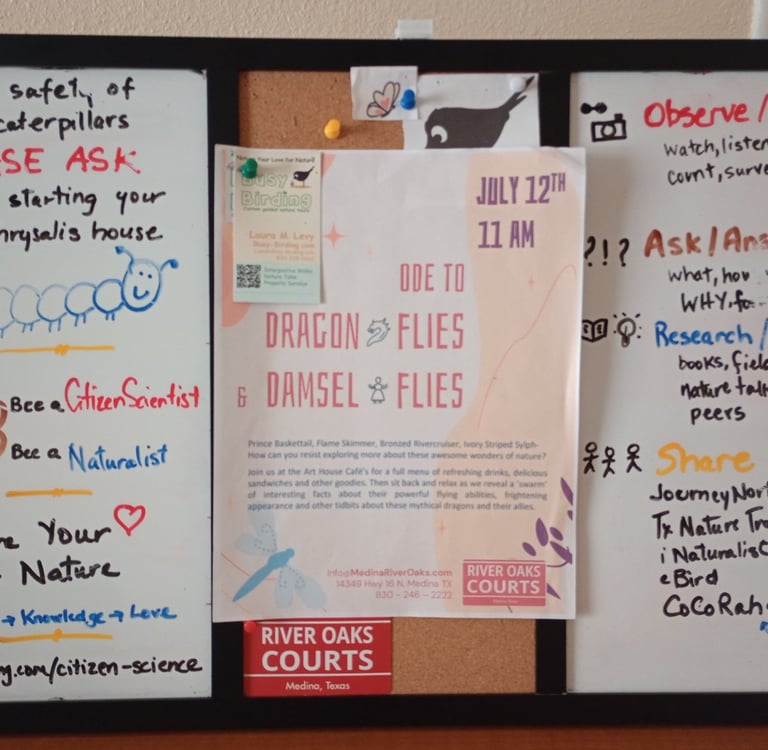 safety of
caterpillars
SE ASK
starting your
hrysalis house
Bee a Citizen Scientist
Bee a Naturalist
Your
Nature
→ Knowledge → Love
g.com/citizen-science
Your Love for Nature
Busy
Birding
Custom guided nature tours
Laura M. Levy
Busy-Birding.com
Interpretive Walks
Nature Talks
Property Surveys
JULY 12TH
11 AM
ODE TO
DRAGON FLIES
& DAMSEL FLIES
Prince Baskettail, Flame Skimmer, Bronzed Rivercruiser, Ivory Striped Sylph-
How can you resist exploring more about these awesome wonders of nature?
Join us at the Art House Café's for a full menu of refreshing drinks, delicious
sandwiches and other goodies. Then sit back and relax as we reveal a 'swarm'
of interesting facts about their powerful flying abilities, frightening
appearance and other tidbits about these mythical dragons and their allies.
Info@MedinaRiverOaks.com
14349 Hwy 16 N, Medina TX
830 - 246 - 2222
RIVER OAKS
COURTS
Medina, Texas
RIVER OAKS
COURTS
Medina, Texas
Observe /
watch, listen
count, surve
?!?
Ask/Ans
what, how
WHY, fo
Research/
books, field
nature talk
peers
Share
JourneyNort
Tx Nature Tra
iNaturalist
eBird
CoCoRah